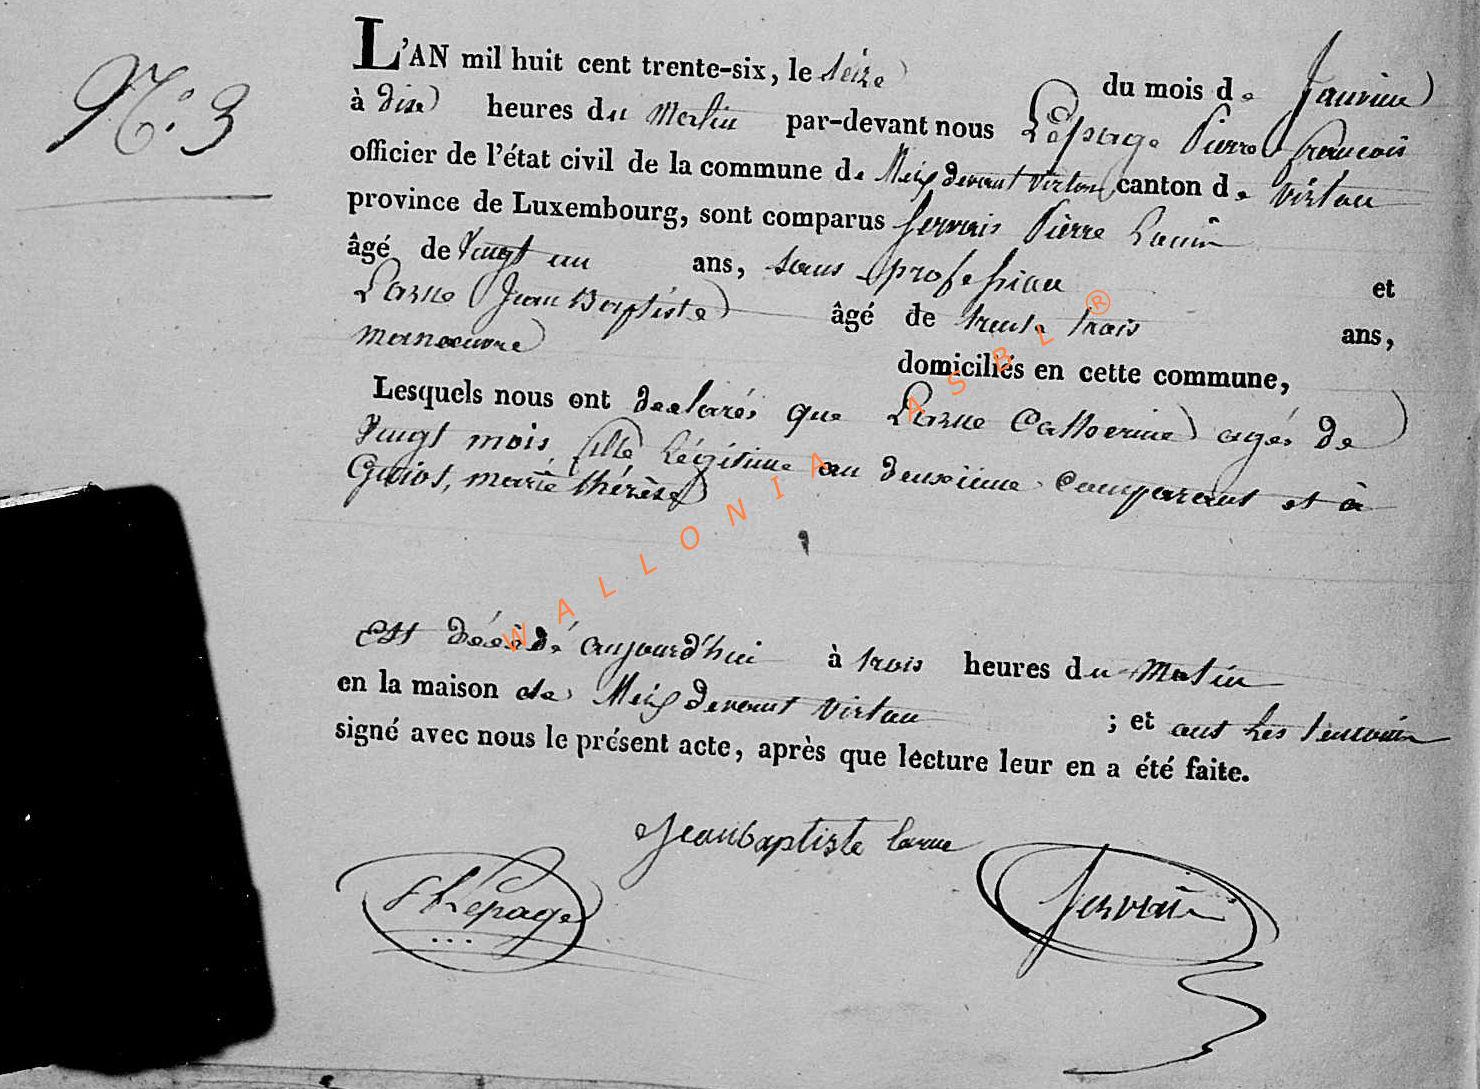 N.o 3
L'AN mil huit cent trente-six, le seize du mois de Janvier
à dix heures du Matin par-devant nous Lepage Pierre françois
officier de l'état civil de la commune de Meix devant virton canton de virton
province de Luxembourg, sont comparus Pierre
âgé de vingt un ans, sans profession et
Larue Jean Baptiste âgé de trente trois ans,
manoeuvre domiciliés en cette commune,
Lesquels nous ont declarés que Larue Catherine agés de
vingt mois, fille légitime au deuxiime comparant et à
Guiot, marie thérèse
est décèdé aujourd'hui à trois heures du Matin
en la maison de Meix devant virton ; et ont les
signé avec nous le présent acte, après que lecture leur en a été faite.
Jeanbaptiste larue
Lepage
WALLONIA ASBL ®